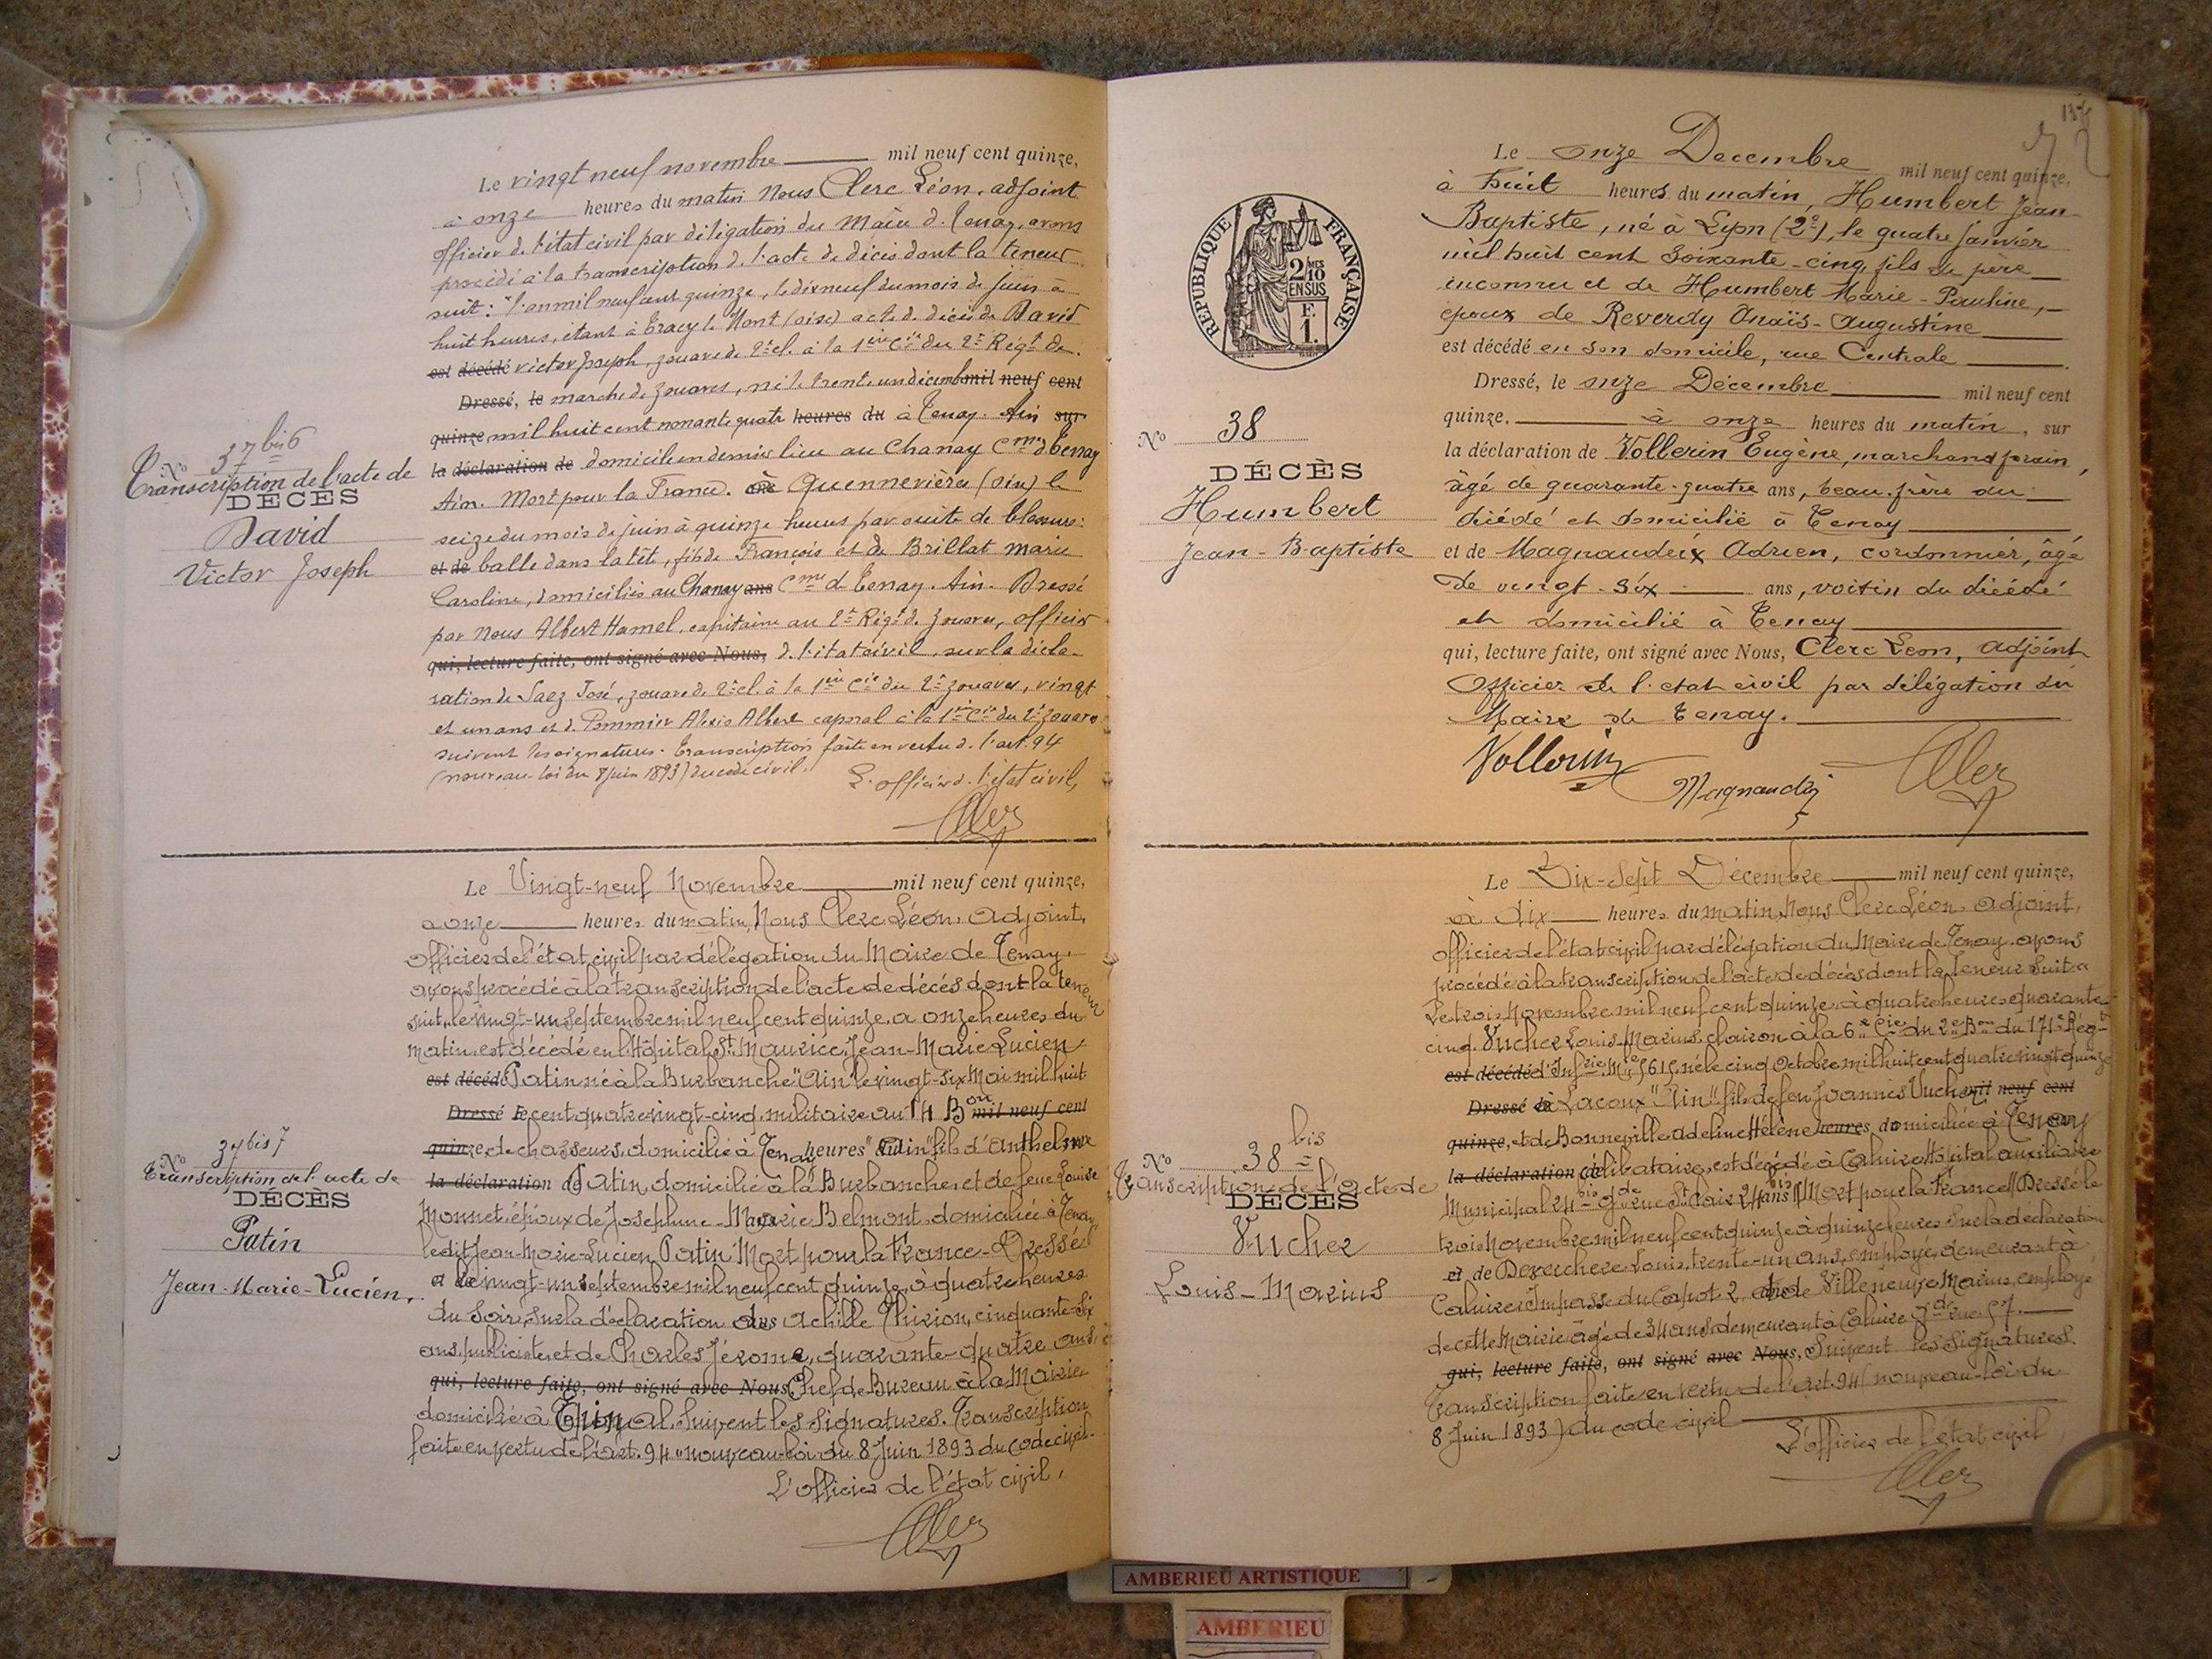 Le vingt neuf novembre mil neuf cent quinze,
à onze heures du matin Nous Clerc Léon, adjoint
officier de l'état civil par délégation du Maire de Tenay, avons
procédé à la transcription de l'acte de décès dont la teneur
suit: "l'an mil neuf cent quinze, le dix neuf du mois de juin à
huit heures, étant à Tracy le Mont (oise) acte de décès de David
est décédé victor Joseph, zouave de 2e cl. à la 1ère Cie du 2e Régt de
Dressé, le marche de zouaves, né le trente un décembre mil neuf cent
quinze mil huit cent nonante quatre heures du à Tenay. Ain sur
la déclaration de domicile en dernier lieu au Chanay Cme d Tenay
Ain. Mort pour la France. à Quennevière (oise) le
seize du mois de juin à quinze heures par suite de blessure:
et de balle dans la tête, fils de François et de Brillat marie
Caroline, domiciliés au Chanay ans Cme d Tenay. Ain. Dressé
par Nous Albert Hamel, capitaine au 2e Régt de Zouaves, officier
qui, lecture faite, ont signé avec Nous, de l'état civil, sur la décla-
ration de Saez José, zouave de 2e cl. à la 1ère Cie du 2e zouaves, vingt
et un ans et de Pommier Alexis Albert caporal à la 1ère Cie du 2e zouaves
suivent les signatures. Transcription faite en vertu de l'art. 94
(nouveau-loi du 8 juin 1893) du code civil.
L'officier de l'état civil,
Clerc
No 37 bis 6
Transcription de l'acte de
DÉCÈS
David
Victor Joseph
Le Vingt-neuf Novembre mil neuf cent quinze,
à onze heures du matin, Nous Clerc Léon, adjoint,
officier de l'état civil par délégation du Maire de Tenay,
avons procédé à la transcription de l'acte de décès dont la teneur
suit, le vingt-un septembre mil neuf cent quinze, à onze heures du
matin, est décédé en l'Hôpital St Maurice, Jean-Marie Lucien
est décédé Patin né à la Burbanche "Ain" le vingt-six Mai mil huit
Dressé le cent quatre vingt-cinq, militaire au 14 Bon mil neuf cent
quinze de chasseurs, domicilié à Tenay heures "Ain" fils d'Anthelme
la déclaration de Patin, domicilié à la Burbanche et de feue Louise
Monnet, époux de Josephine-Marie Belmont, domiciliée à Tenay
ledit Jean-Marie-Lucien Patin Mort pour la France - Dressé
et de le vingt-un septembre mil neuf cent quinze, à quatre heures
du soir, sur la déclaration de Achille Thirion, cinquante-six
ans, publiciste, et de Charles Jérome, quarante-quatre ans,
qui, lecture faite, ont signé avec Nous Chef de Bureau à la Mairie
domicilié à Epinal, Suivent les signatures. Transcription
faite en vertu de l'art. 94 "nouveau-loi du 8 Juin 1893 du code civil.
L'officier de l'état civil,
Clerc
No 37 bis 7
Transcription de l'acte de
DÉCÈS
Patin
Jean-Marie-Lucien,
Le onze Decembre mil neuf cent quinze,
à huit heures du matin, Humbert Jean-
Baptiste, né à Lyon (2e), le quatre janvier
mil huit cent soixante-cinq, fils de père
inconnu et de Humbert Marie-Pauline,
époux de Reverdy Anaïs-Augustine
est décédé en son domicile, rue Centrale
Dressé, le onze Décembre mil neuf cent
quinze. à onze heures du matin, sur
la déclaration de Vollerin Eugène, marchand forain,
âgé de quarante-quatre ans, beau-frère du
décédé et domicilié à Tenay
et de Magnaudeix Adrien, cordonnier, âgé
de vingt-six ans, voisin du décédé
et domicilié à Tenay
qui, lecture faite, ont signé avec Nous, Clerc Leon, adjoint
Officier de l'état civil par délégation du
Maire de Tenay.
Vollerin Magnaudeix Clerc
RÉPUBLIQUE FRANÇAISE
2/10 MES
EN SUS
1 F.
No 38
DÉCÈS
Humbert
Jean-Baptiste
Le Dix-sept Décembre mil neuf cent quinze,
à dix heures du matin, Nous Clerc Léon adjoint,
officier de l'état civil par délégation du Maire de Tenay, avons
procédé à la transcription de l'acte de décès dont la teneur suit
Le trois Novembre mil neuf cent quinze, à quatre heures quarante-
cinq Vucher Louis-Marius, clairon à la 6e Cie du 2e Bon du 171e Régt
est décédé d'Infrie Mle 5615, né le cinq Octobre mil huit cent quatre vingt quinze
Dressé le à Lacoux "Ain" fils de feu Joannès Vucher mil neuf cent
quinze, et de Bonneville Adeline Hélène heures, domiciliée à Tenay
la déclaration de célibataire, est décédé à Caluire Hôpital auxiliaire
Municipal 24 bis gde rue St Clair 24 bis "Mort pour la France" Dressé le
trois Novembre mil neuf cent quinze à quinze heures sur la déclaration
et de Deverchere Louis, trente-un ans, employé, demeurant à
Caluire Impasse du Capot 2 et de Villeneuve Marius, employé
de cette Mairie âgé de 34 ans demeurant à Caluire gde rue 57.
qui, lecture faite, ont signé avec Nous, Suivent les signatures.
Transcription faite en vertu de l'art. 94 (nouveau-loi du
8 Juin 1893) du code civil
L'officier de l'état civil,
Clerc
No 38 bis
Transcription de l'acte de
DÉCÈS
Vucher
Louis-Marius
AMBERIEU ARTISTIQUE
AMBERIEU